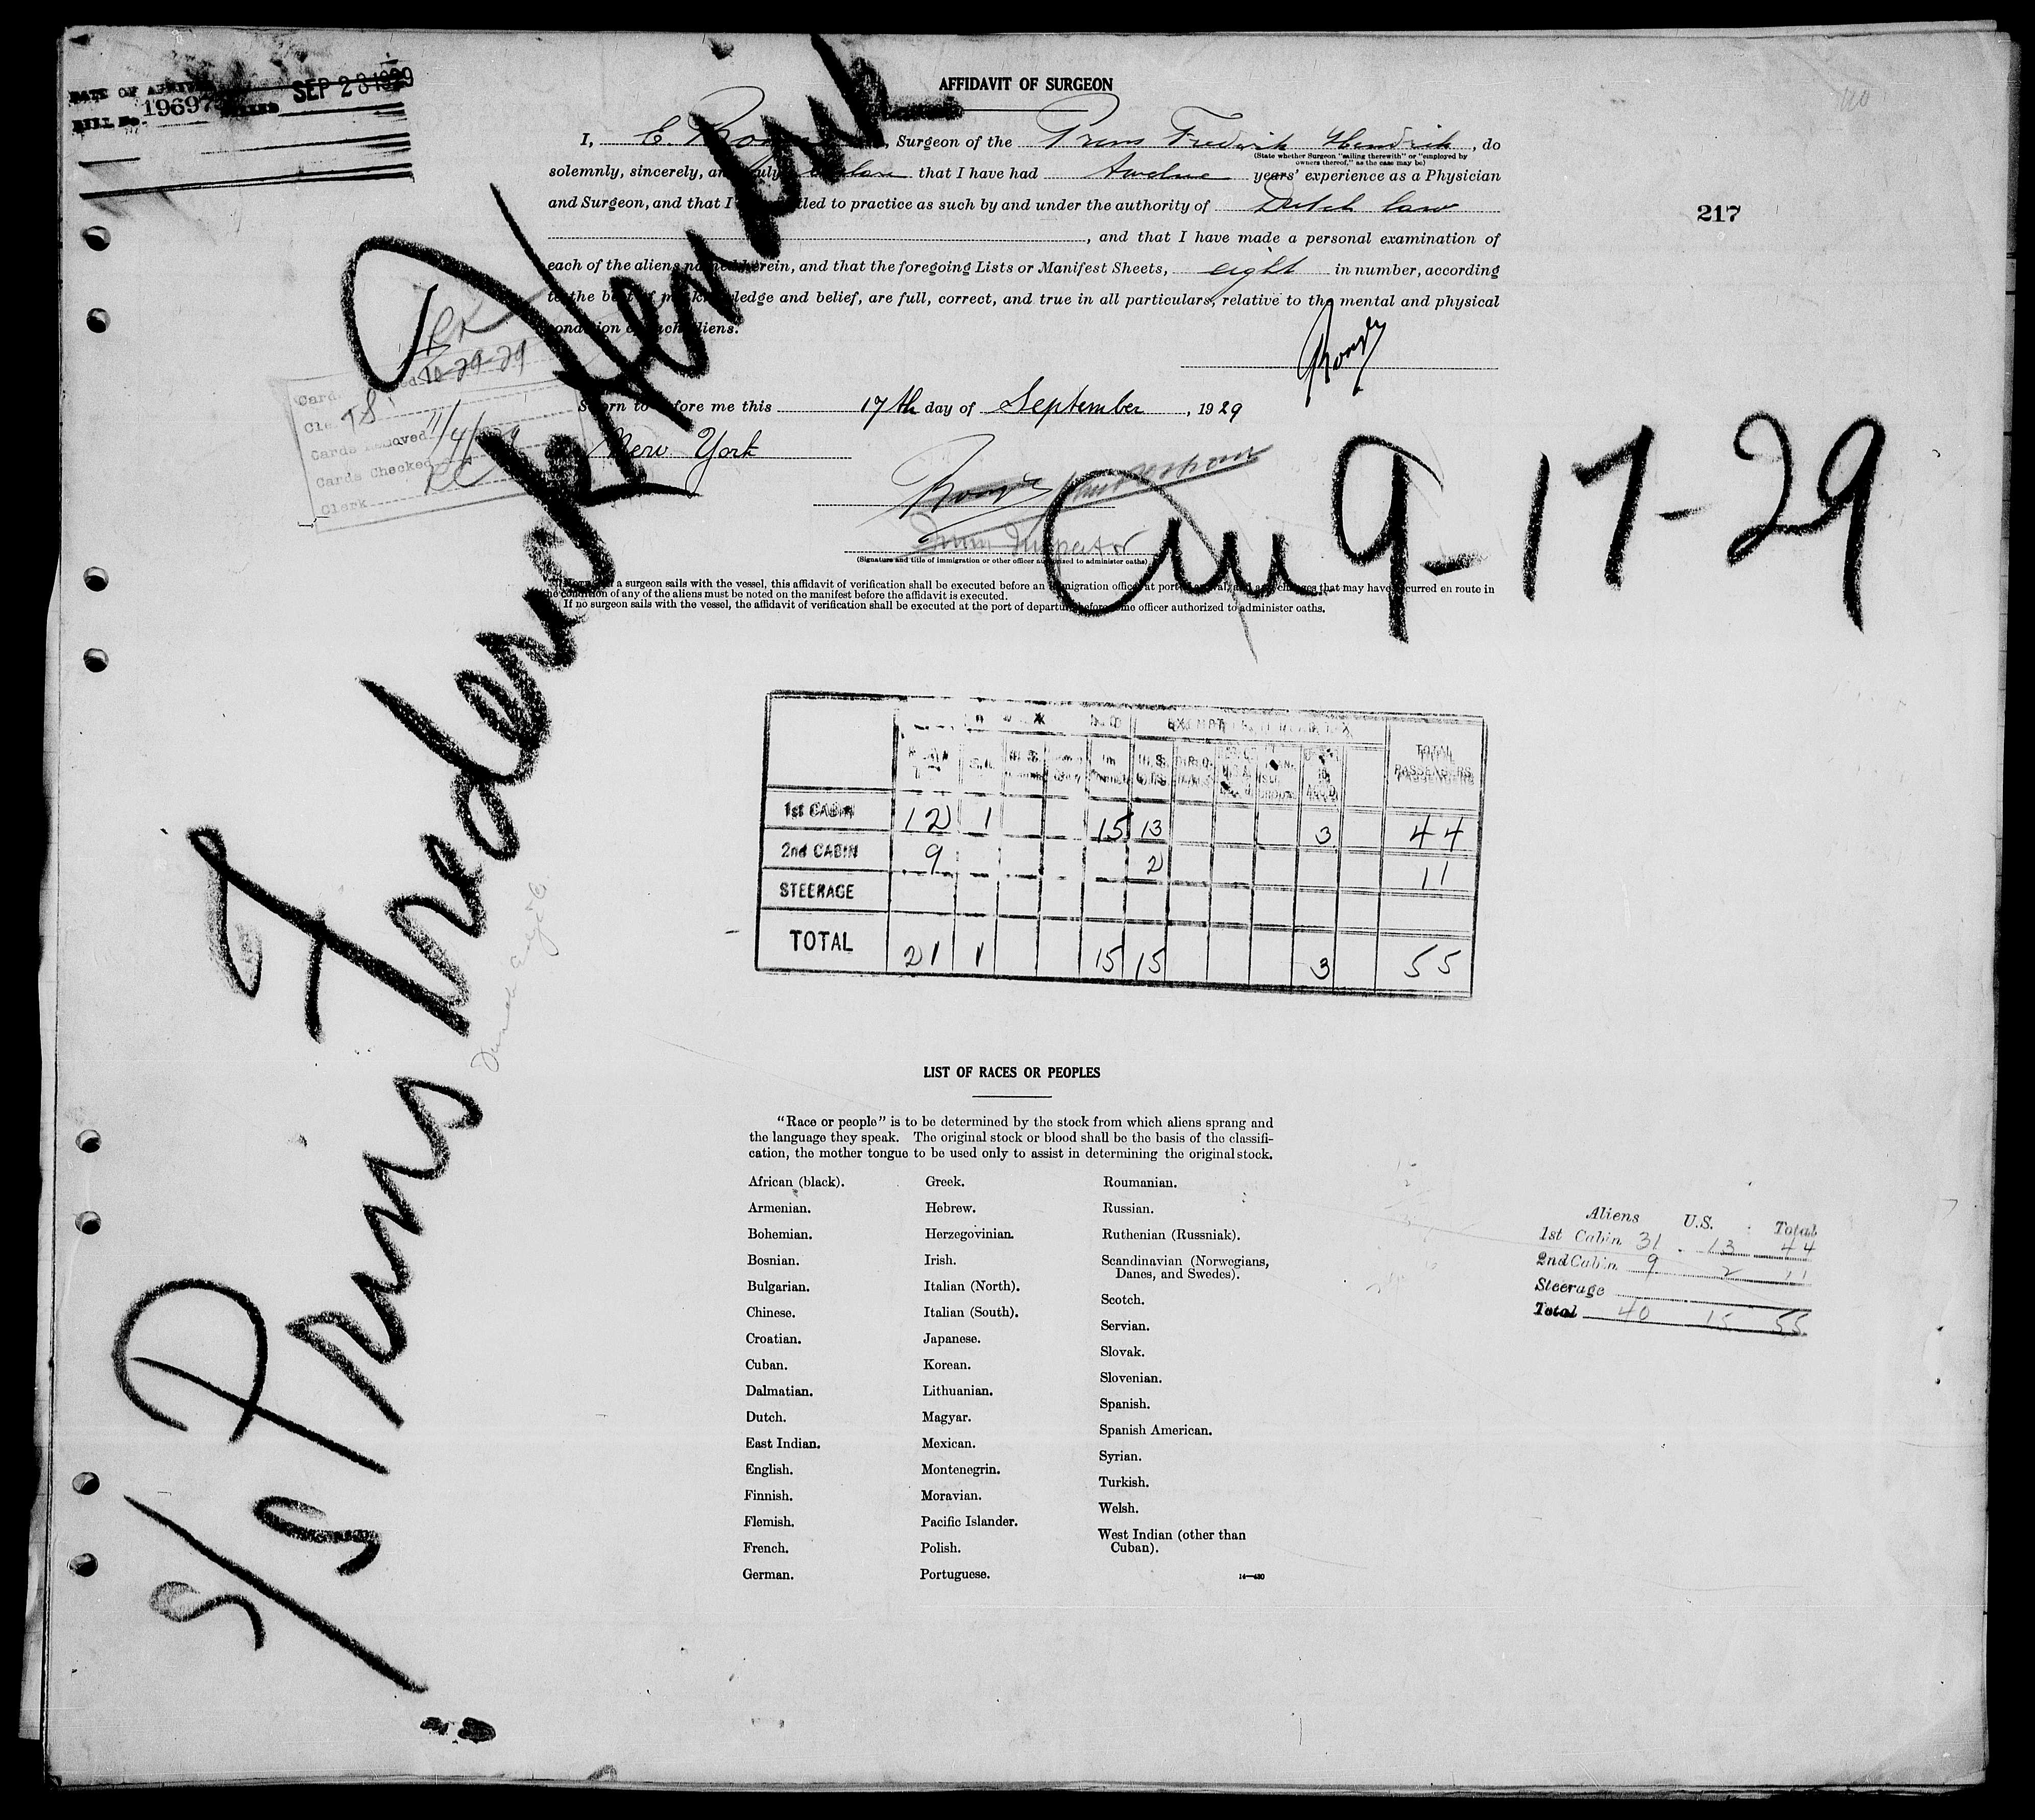 DATE OF ARRIVAL
BILL No. 19697 SEP 23 1929
AFFIDAVIT OF SURGEON
I, E. , Surgeon of the Prins Frederik Hendrik, do
(State whether Surgeon "sailing therewith" or "employed by
owners thereof," as the case may be)
solemnly, sincerely, and truly that I have had twelve years' experience as a Physician
and Surgeon, and that I to practice as such by and under the authority of Dutch law
, and that I have made a personal examination of
each of the aliens named herein, and that the foregoing Lists or Manifest Sheets, eight in number, according
to the best of my knowledge and belief, are full, correct, and true in all particulars, relative to the mental and physical
condition of such aliens.
217
10-29-29
Cards Removed 11/4/
Cards Checked
Clerk
Sworn to before me this 17th day of September, 1929
New York
Inspector
(Signature and title of immigration or other officer authorized to administer oaths)
a surgeon sails with the vessel, this affidavit of verification shall be executed before an immigration officer at port changes that may have occurred en route in
the condition of any of the aliens must be noted on the manifest before the affidavit is executed.
If no surgeon sails with the vessel, the affidavit of verification shall be executed at the port of departure before some officer authorized to administer oaths.
S/S Prins Frederick Hendrik
9-17-29
TOTAL PASSENGERS
1st CABIN 12 1 15 13 3 44
2nd CABIN 9 2 11
STEERAGE
TOTAL 21 1 15 15 3 55
LIST OF RACES OR PEOPLES
"Race or people" is to be determined by the stock from which aliens sprang and
the language they speak. The original stock or blood shall be the basis of the classifi-
cation, the mother tongue to be used only to assist in determining the original stock.
African (black).
Armenian.
Bohemian.
Bosnian.
Bulgarian.
Chinese.
Croatian.
Cuban.
Dalmatian.
Dutch.
East Indian.
English.
Finnish.
Flemish.
French.
German.
Greek.
Hebrew.
Herzegovinian.
Irish.
Italian (North).
Italian (South).
Japanese.
Korean.
Lithuanian.
Magyar.
Mexican.
Montenegrin.
Moravian.
Pacific Islander.
Polish.
Portuguese.
Roumanian.
Russian.
Ruthenian (Russniak).
Scandinavian (Norwegians,
Danes, and Swedes).
Scotch.
Servian.
Slovak.
Slovenian.
Spanish.
Spanish American.
Syrian.
Turkish.
Welsh.
West Indian (other than
Cuban).
14—430
Aliens U.S. Total
1st Cabin 31 13 44
2nd Cabin 9 2 11
Steerage
Total 40 15 55